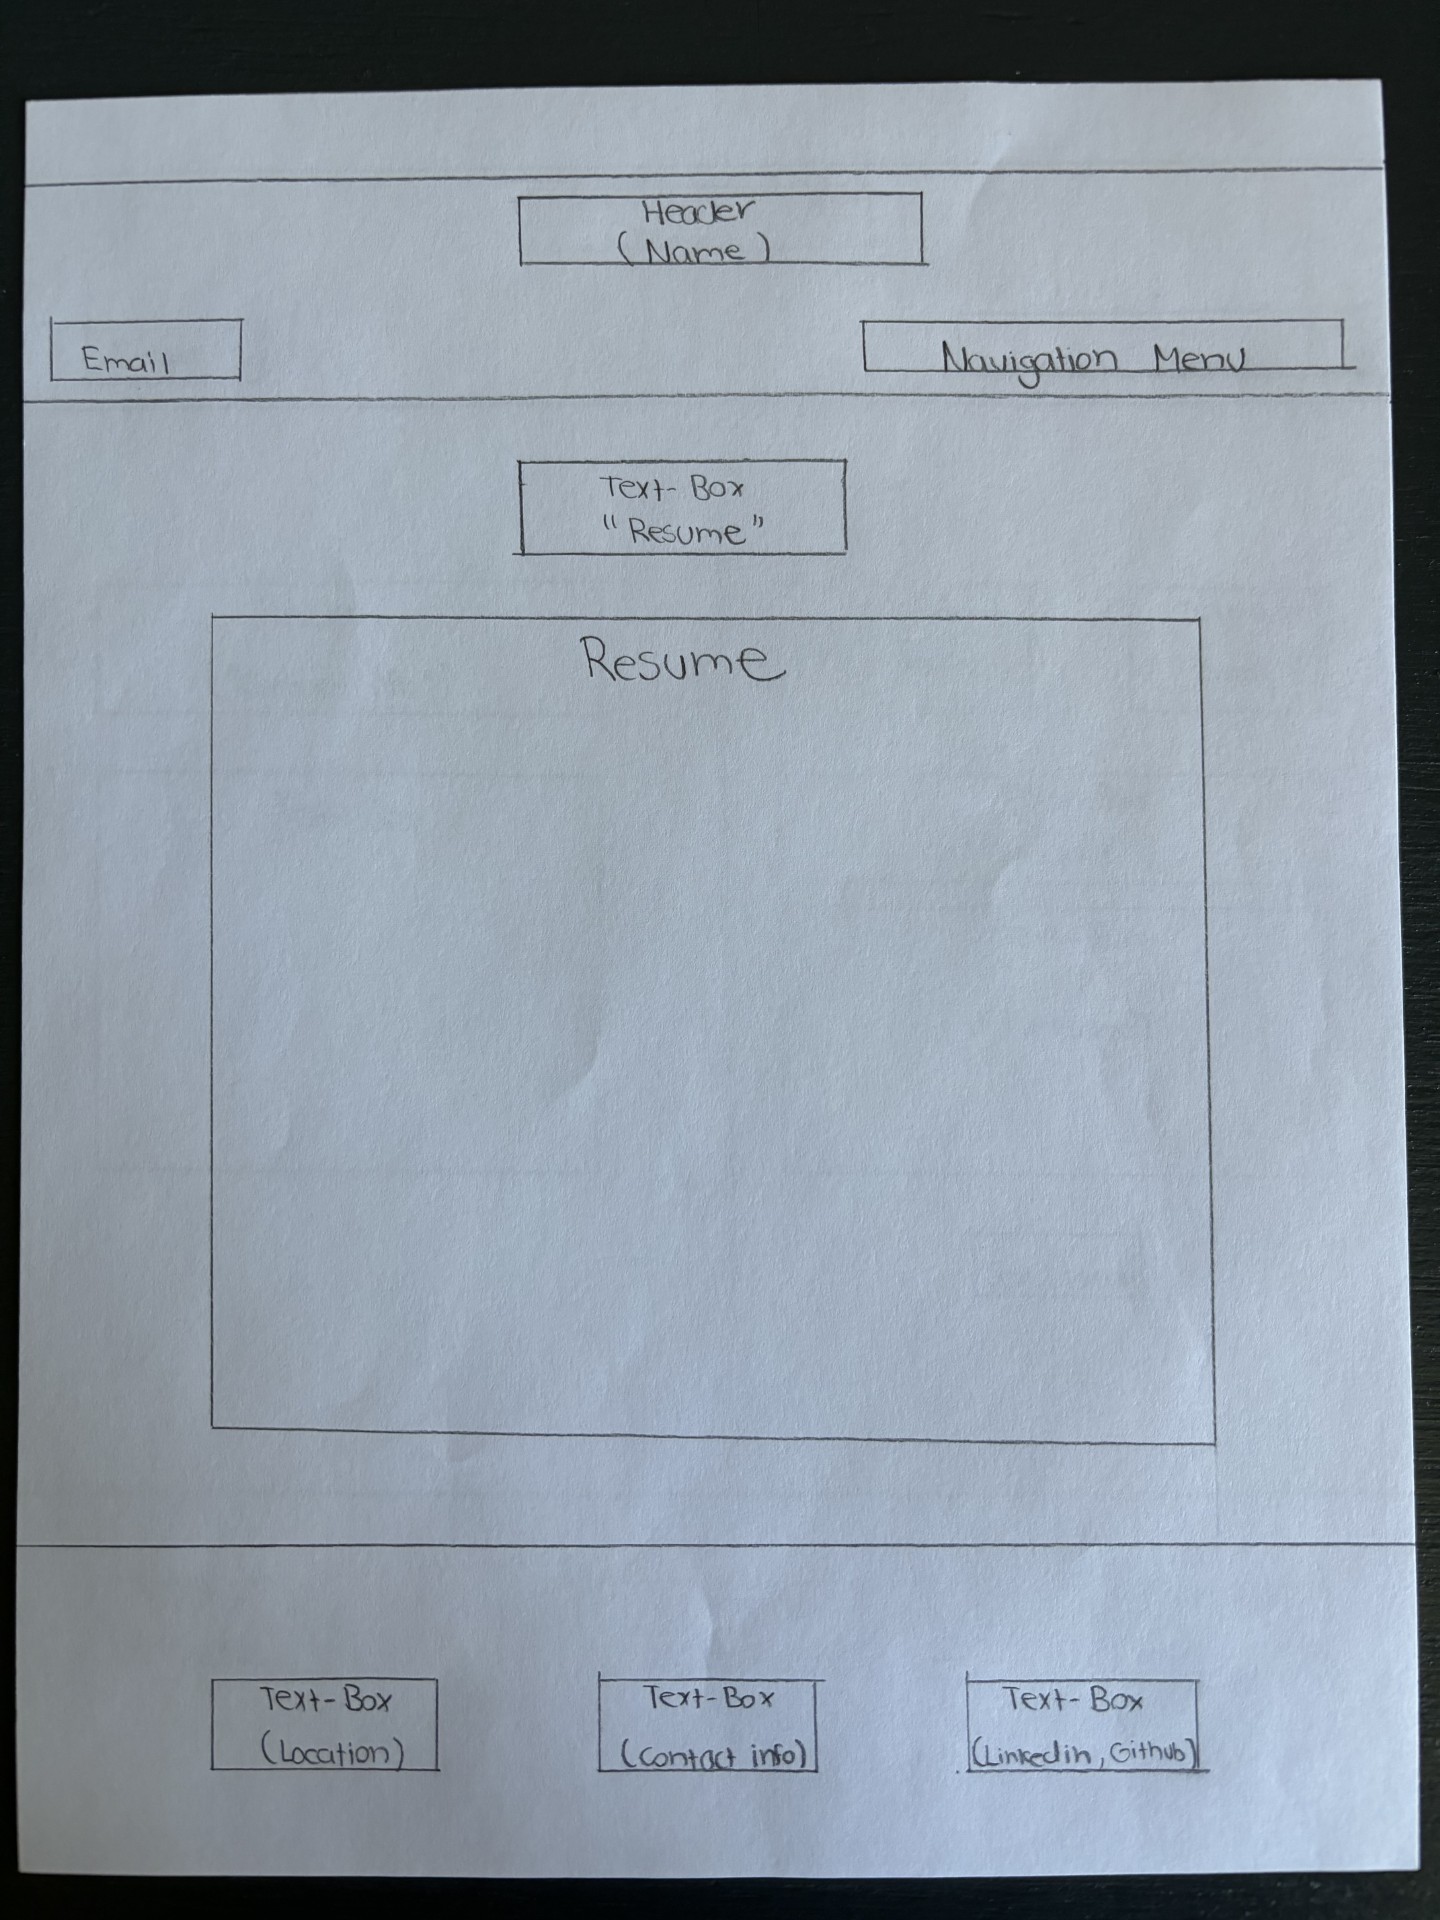 Header
(Name)
Email
Navigation Menu
Text-Box
"Resume"
Resume
Text-Box
(Location)
Text-Box
(Contact info)
Text-Box
(Linkedin, Github)